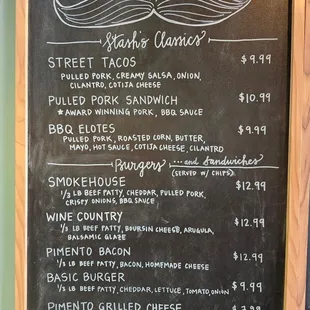 Stash's Classics
STREET TACOS $9.99
PULLED PORK, CREAMY SALSA, ONION,
CILANTRO, COTIJA CHEESE
PULLED PORK SANDWICH $10.99
★ AWARD WINNING PORK, BBQ SAUCE
BBQ ELOTES $9.99
PULLED PORK, ROASTED CORN, BUTTER,
MAYO, HOT SAUCE, COTIJA CHEESE, CILANTRO
Burgers ...and Sandwiches
(SERVED W/ CHIPS)
SMOKEHOUSE $12.99
1/3 LB BEEF PATTY, CHEDDAR, PULLED PORK,
CRISPY ONIONS, BBQ SAUCE
WINE COUNTRY $12.99
1/3 LB BEEF PATTY, BOURSIN CHEESE, ARUGULA,
BALSAMIC GLAZE
PIMENTO BACON $12.99
1/3 LB BEEF PATTY, BACON, HOMEMADE CHEESE
BASIC BURGER $9.99
1/3 LB BEEF PATTY, CHEDDAR, LETTUCE, TOMATO, ONION
PIMENTO GRILLED CHEESE